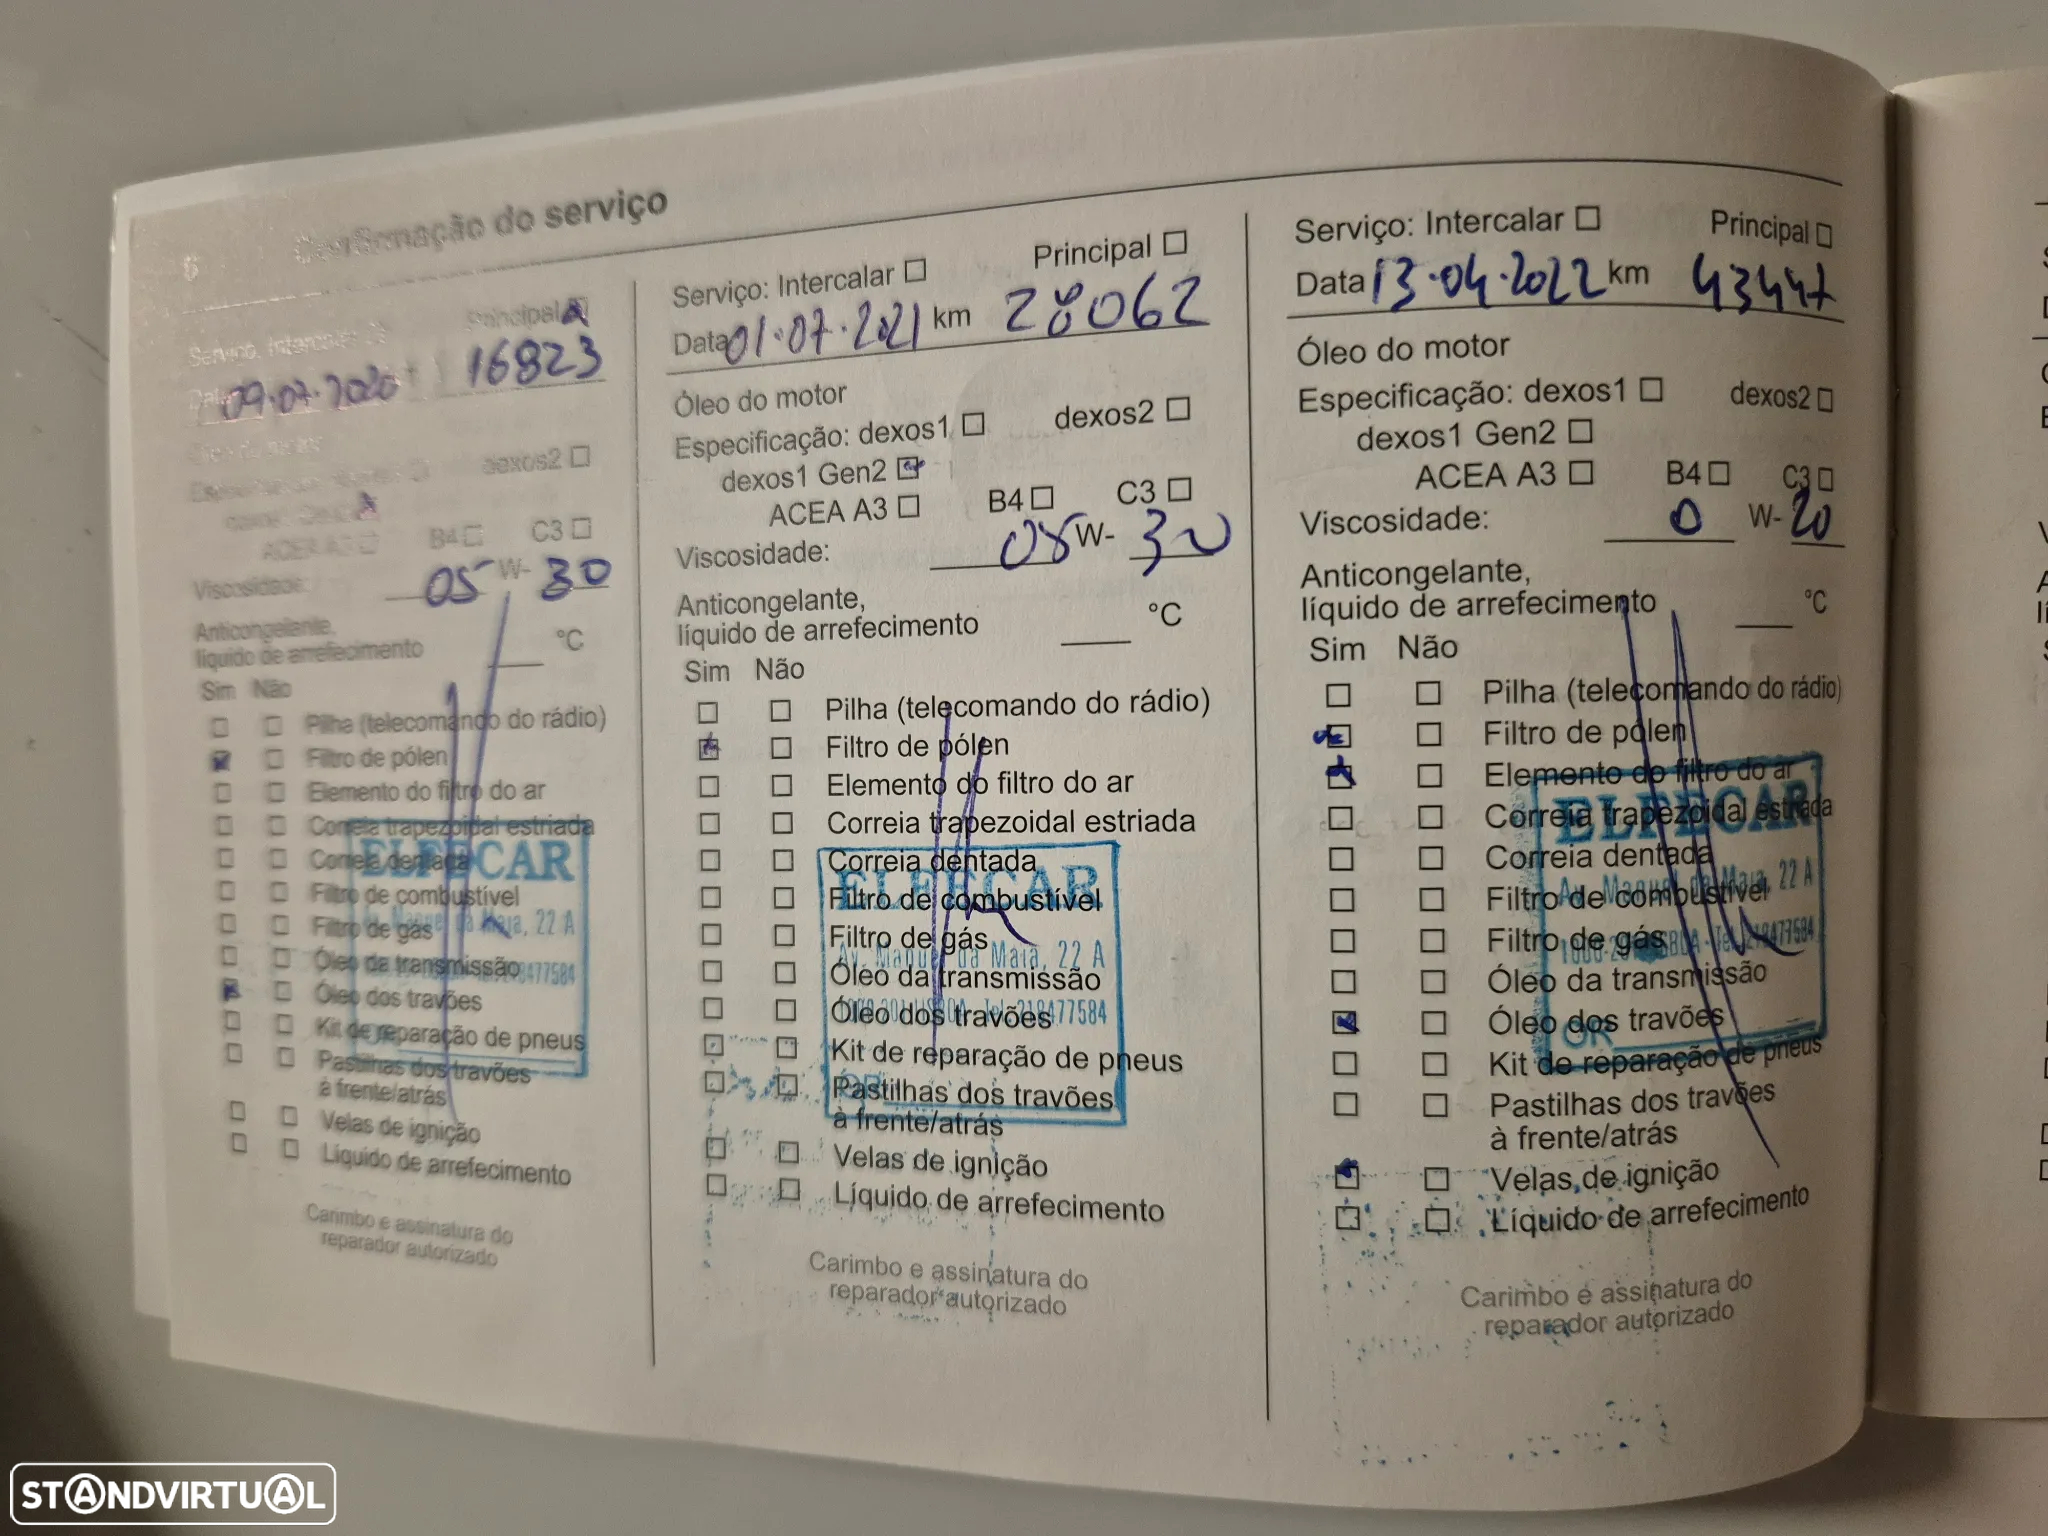 6 Confirmação do serviço
Serviço: Intercalar Principal
Data 09.07.2020 16823
Óleo do motor
dexos2
ACEA A3 B4 C3
Viscosidade: 05 W- 30
Anticongelante,
líquido de arrefecimento °C
Sim Não
Pilha (telecomando do rádio)
Filtro de pólen
Elemento do filtro do ar
Correia trapezoidal estriada
Correia dentada
Filtro de combustível
Filtro de gás
Óleo da transmissão
Óleo dos travões
Kit de reparação de pneus
Pastilhas dos travões
à frente/atrás
Velas de ignição
Líquido de arrefecimento
ELFECAR
Manuel da Maia, 22 A
218477584
Carimbo e assinatura do
reparador autorizado
Serviço: Intercalar Principal
Data 01.07.2021 km 28062
Óleo do motor
Especificação: dexos1 dexos2
dexos1 Gen2
ACEA A3 B4 C3
Viscosidade: 05 W- 30
Anticongelante,
líquido de arrefecimento °C
Sim Não
Pilha (telecomando do rádio)
Filtro de pólen
Elemento do filtro do ar
Correia trapezoidal estriada
Correia dentada
Filtro de combustível
Filtro de gás
Óleo da transmissão
Óleo dos travões
Kit de reparação de pneus
Pastilhas dos travões
à frente/atrás
Velas de ignição
Líquido de arrefecimento
ELFECAR
Av. Manuel da Maia, 22 A
LISBOA - Tel. 218477584
OR
Carimbo e assinatura do
reparador autorizado
Serviço: Intercalar Principal
Data 13.04.2022 km 43447
Óleo do motor
Especificação: dexos1 dexos2
dexos1 Gen2
ACEA A3 B4 C3
Viscosidade: 0 W- 20
Anticongelante,
líquido de arrefecimento °C
Sim Não
Pilha (telecomando do rádio)
Filtro de pólen
Elemento do filtro do ar
Correia trapezoidal estriada
Correia dentada
Filtro de combustível
Filtro de gás
Óleo da transmissão
Óleo dos travões
Kit de reparação de pneus
Pastilhas dos travões
à frente/atrás
Velas de ignição
Líquido de arrefecimento
ELFECAR
Av. Manuel da Maia, 22 A
1000-201 LISBOA - Tel. 218477584
OR
Carimbo e assinatura do
reparador autorizado
STANDVIRTUAL